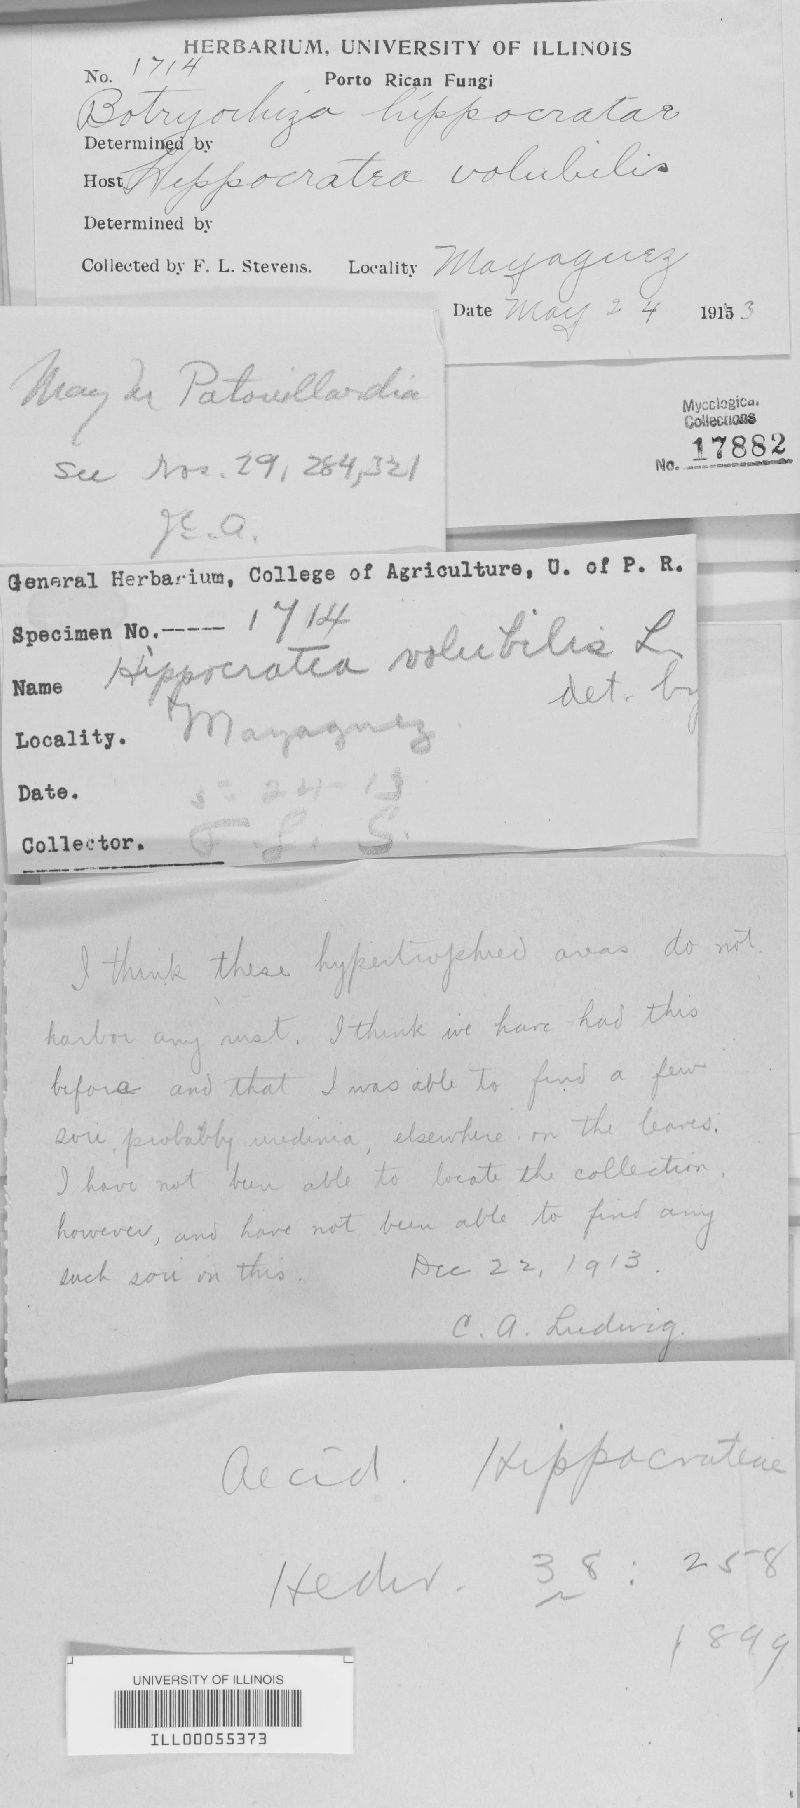 HERBARIUM, UNIVERSITY OF ILLINOIS
No. 1714
Porto Rican Fungi
Botryorhiza hippocrateae
Determined by
Host Hippocratea volubilis
Determined by
Collected by F. L. Stevens. Locality Mayaguez
Date May 24 1913
May be Patouillardia
see Nos. 29, 284, 321
J.C.A.
Mycological
Collections
No. 17882
General Herbarium, College of Agriculture, U. of P. R.
Specimen No.----- 1714
Name Hippocratea volubilis L.
det. by
Locality. Mayaguez
Date. 5-24-13
Collector. F. L. S.
I think these hypertrophied areas do not
harbor any rust. I think we have had this
before and that I was able to find a few
sori, probably uredinia, elsewhere on the leaves.
I have not been able to locate the collection,
however, and have not been able to find any
such sori on this. Dec 22, 1913.
C. A. Ludwig.
Aecid. Hippocrateae
Hedw. 38: 258
1899
UNIVERSITY OF ILLINOIS
ILL00055373